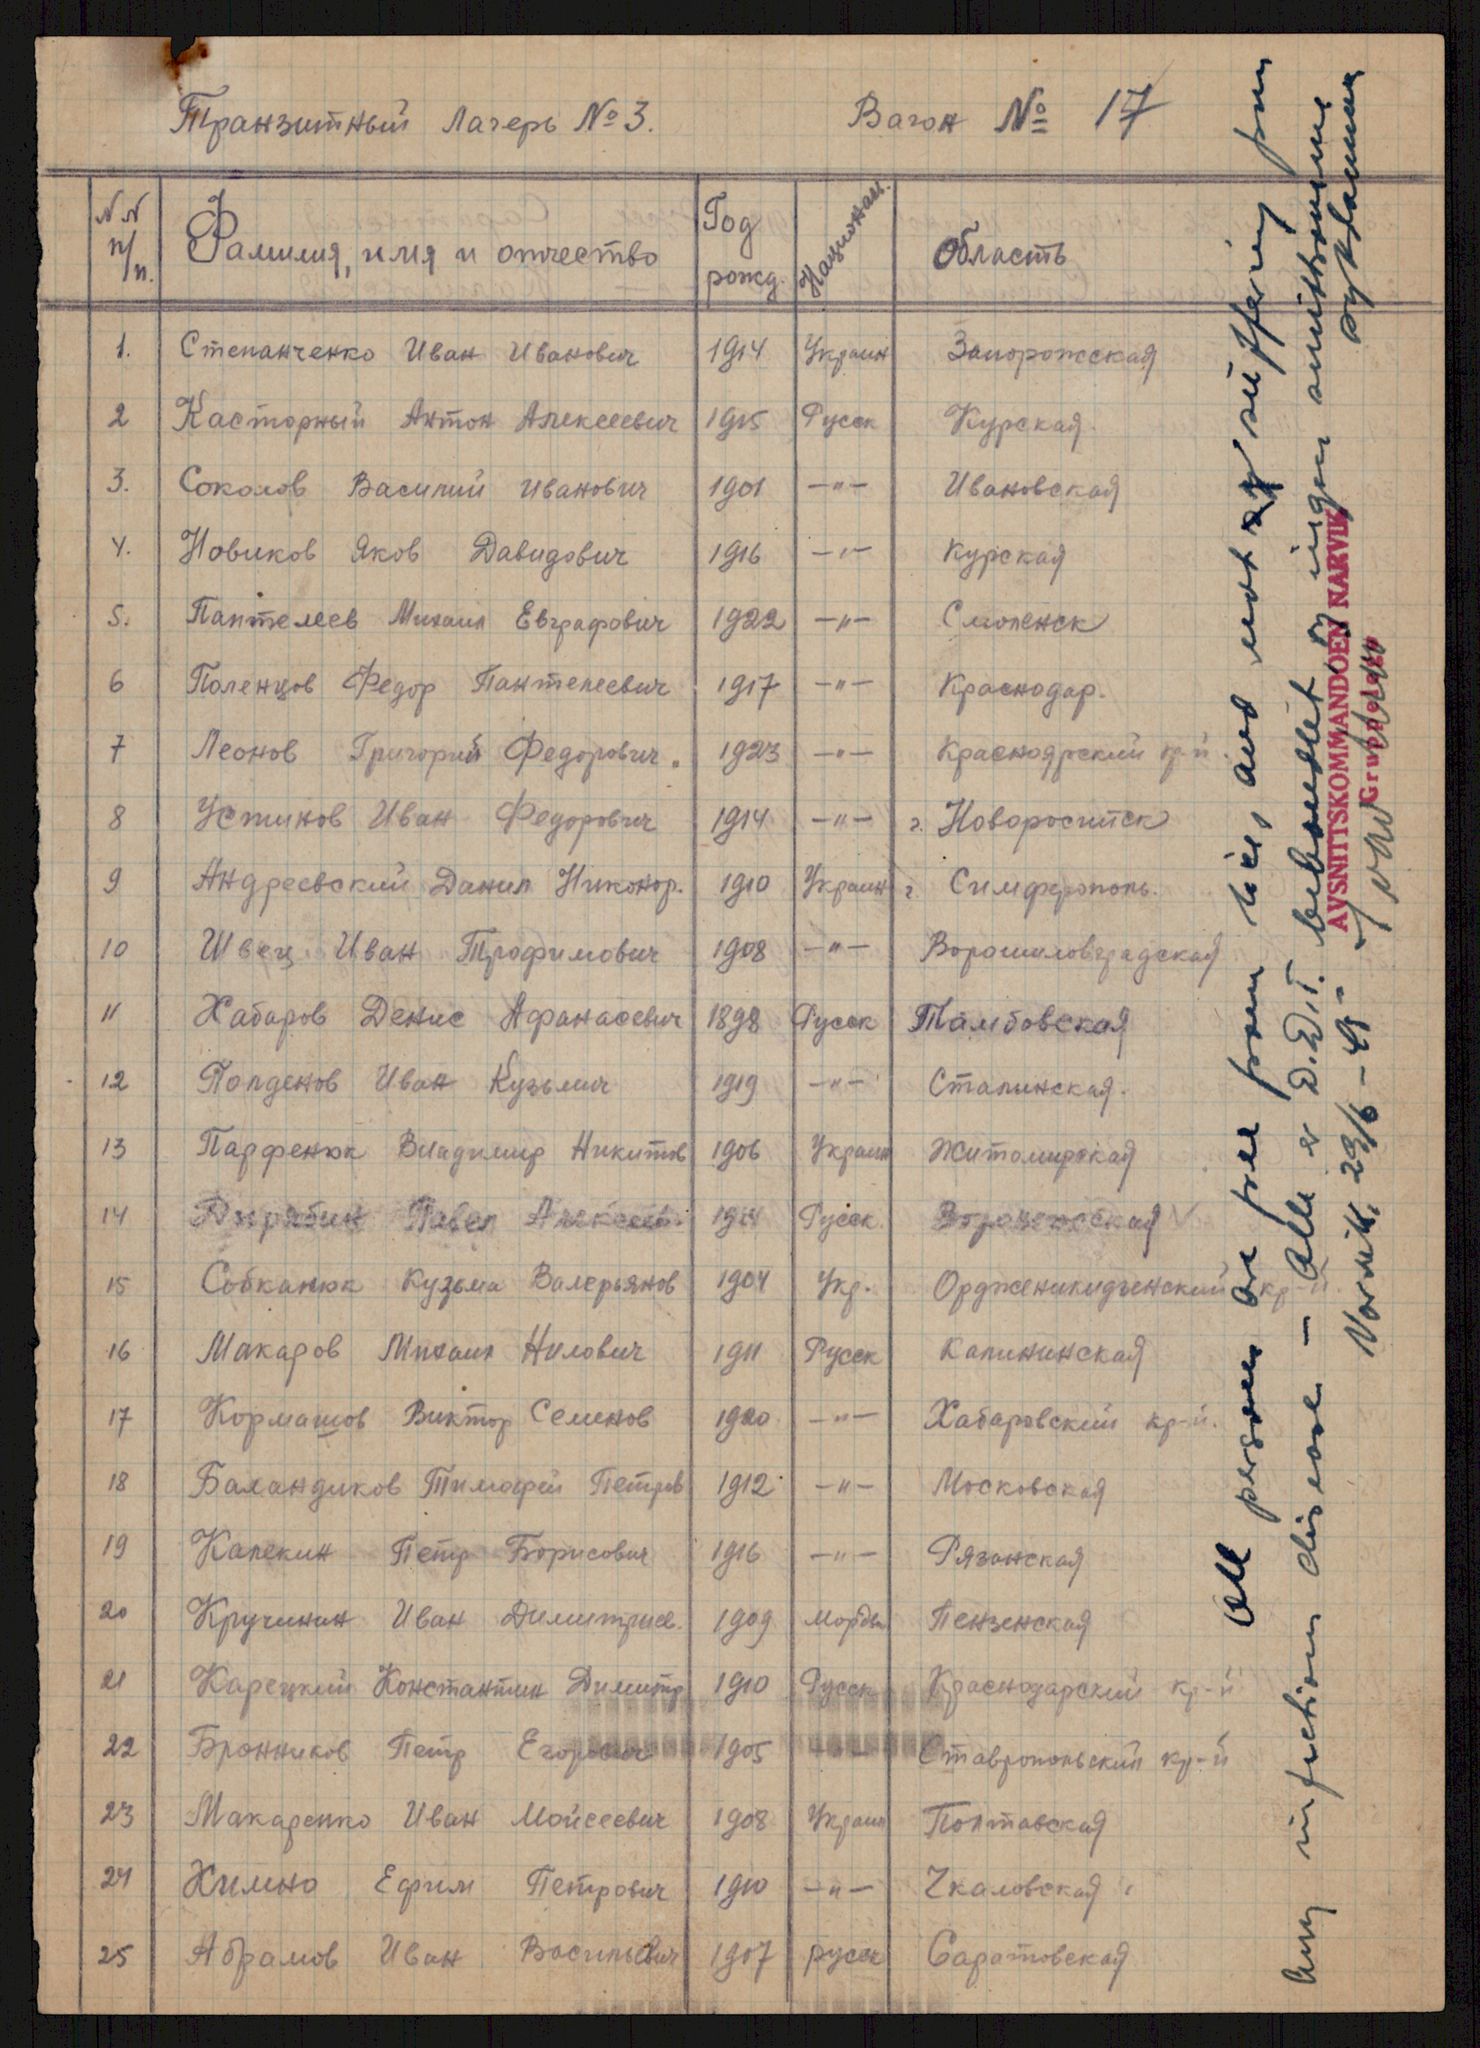 Транзитный лагерь №3. Вагон № 17
N N п/п. Фамилия, имя и отчество Год рожд. Национал. Область
1. Степанченко Иван Иванович 1914 Украин Запорожская
2 Касторный Антон Алексеевич 1915 Русск Курская.
3. Соколов Василий Иванович 1901 —"— Ивановская
4. Новиков Яков Давидович 1916 —"— Курская
5. Пантелеев Михаил Евграфович 1922 —"— Смоленск
6 Поленцов Федор Пантелеевич 1917 —"— Краснодар.
7 Леонов Григорий Федорович. 1923 —"— Красноярский кр-й
8 Устинов Иван Федорович 1914 —"— г. Новоросийск
9 Андреевский Данил Никонор. 1910 Украин г. Симферополь.
10 Швец Иван Трофимович 1908 —"— Ворошиловградская
11 Хабаров Денис Афанасевич 1898 Русск Тамбовская
12 Полденов Иван Кузьмич 1919 —"— Сталинская.
13 Парфенюк Владимир Никитов 1906 Украин Житомирская
14 Павел Алексеев. 1914 Русск. Воронежская
15 Собканюк Кузьма Валерьянов 1904 Укр. Орджоникидзенский кр-й
16 Макаров Михаил Нилович 1911 Русск Калининская
17 Кормашов Виктор Семенов 1920 —"— Хабаровский кр-й.
18 Баландиков Тимофей Петров 1912 —"— Московская
19 Капекин Петр Борисович 1916 —"— Рязанская
20 Кручинин Иван Димитриев. 1909 Мордв Пензенская
21 Карецкий Константин Димитр 1910 Русск Краснодарский кр-й
22 Бронников Петр Егорович 1905 —"— Ставропольский кр-й
23 Макаренко Иван Мойсеевич 1908 Украин Полтавская
24 Химно Ефим Петрович 1910 —"— Чкаловская
25 Абрамов Иван Васильевич 1907 русск Саратовская
All persons are free from lice, and not suffering from
any infections disease — Alle er D.D.T. behandlet og ingen smittsomme sykdommer
Narvik, 23/6 - 45 -
AVSNITTSKOMMANDOEN NARVIK